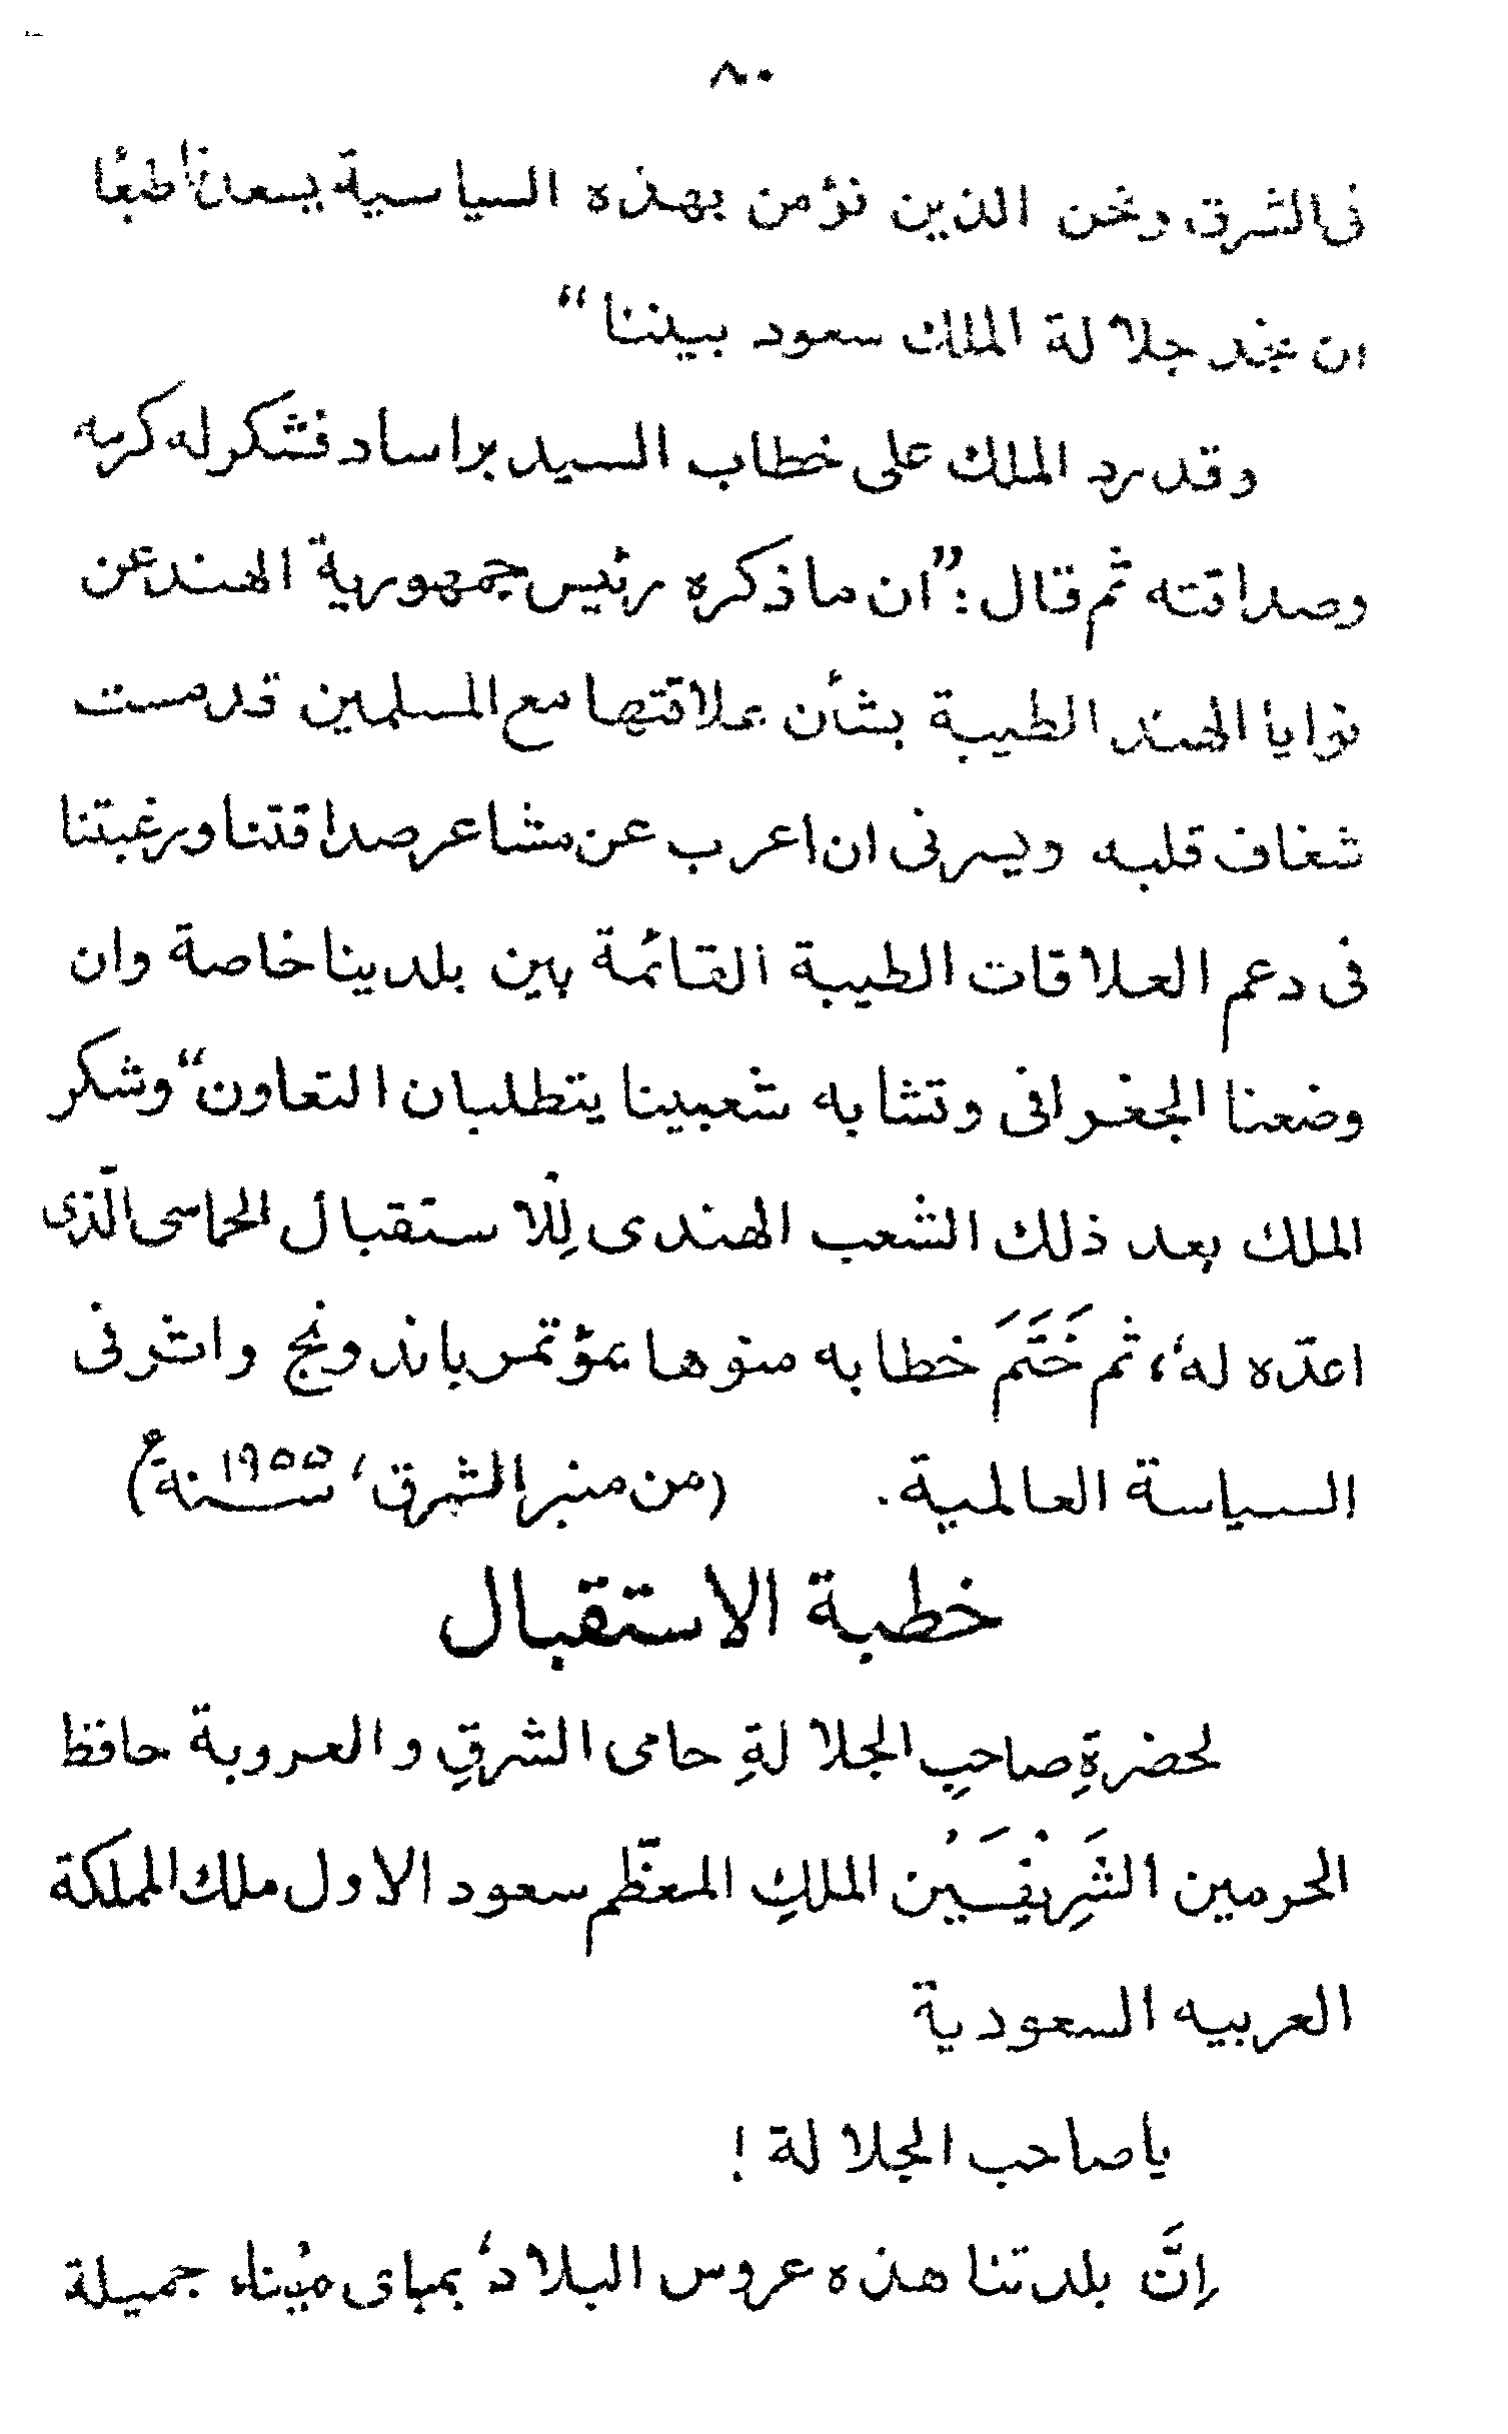 ٨٠
فى الشرق ونحن الذين نؤمن بهذه السياسية يسعدنا طبعًا
ان نجد جلالة الملك سعود بيننا“
وقد رد الملك على خطاب السيد براساد فشكر له كرمه
وصداقته ثم قال: ”ان ما ذكره رئيس جمهورية الهند عن
نوايا الهند الطيبة بشأن علاقتها مع المسلمين قد مست
شغاف قلبه ويسرنى ان اعرب عن مشاعر صداقتنا ورغبتنا
فى دعم العلاقات الطيبة القائمة بين بلدينا خاصة وان
وضعنا الجغرافى وتشابه شعبينا يتطلبان التعاون“ وشكر
الملك بعد ذلك الشعب الهندى لِلْاستقبال الحماسى الّذى
اعدّه له، ثم خَتَمَ خطابه منوها بمؤتمر باندونج واثر فى
السياسة العالمية. (من منبر الشرق، سنة ١٩٥٥ء)
خطبة الاستقبال
لحضرةِ صاحبِ الجلالةِ حامى الشرقِ والعروبة حافظ
الحرمين الشَرِيْفَيْن الملكِ المعظّم سعود الاول ملك المملكة
العربيه السعودية
يا صاحب الجلالة!
اِنَّ بلدتنا هذه عروس البلاد، بمباى مِيْناء جميلة